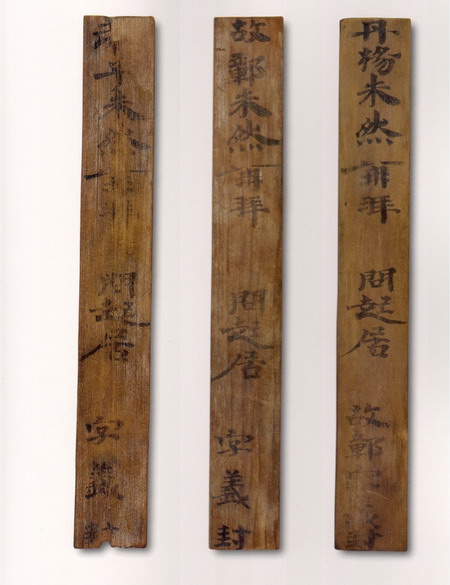 丹楊朱然再拜 問起居 故鄣字義封
故鄣朱然再拜 問起居 字義封
弟子朱然再拜 問起居 字義封